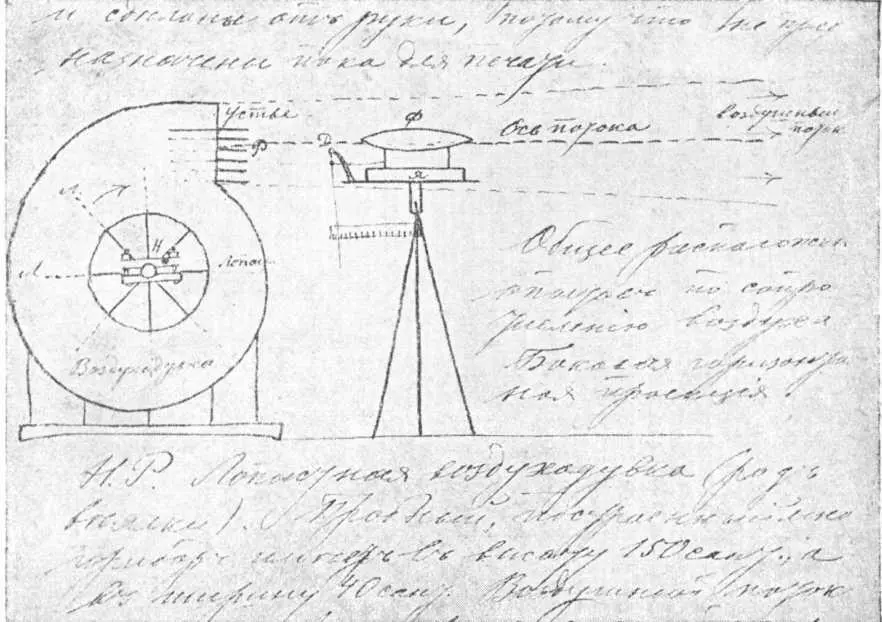 и сделаны отъ руки, потому что не пред
назначены пока для печати.
Устье
Ф
Ось потока
Воздушный
поток
Р
Д
Я
Л
Н
Л
Лопас
Воздуходувка
Общее расположен
по сопро
тивленію воздуха
Боковая горизонта
ная проекція.
Н.Р. Лопастная воздуходувка (родъ
веялки). построенный мною
имеетъ въ высоту 150 сант., а
въ ширину 40 сант. Воздушный поток